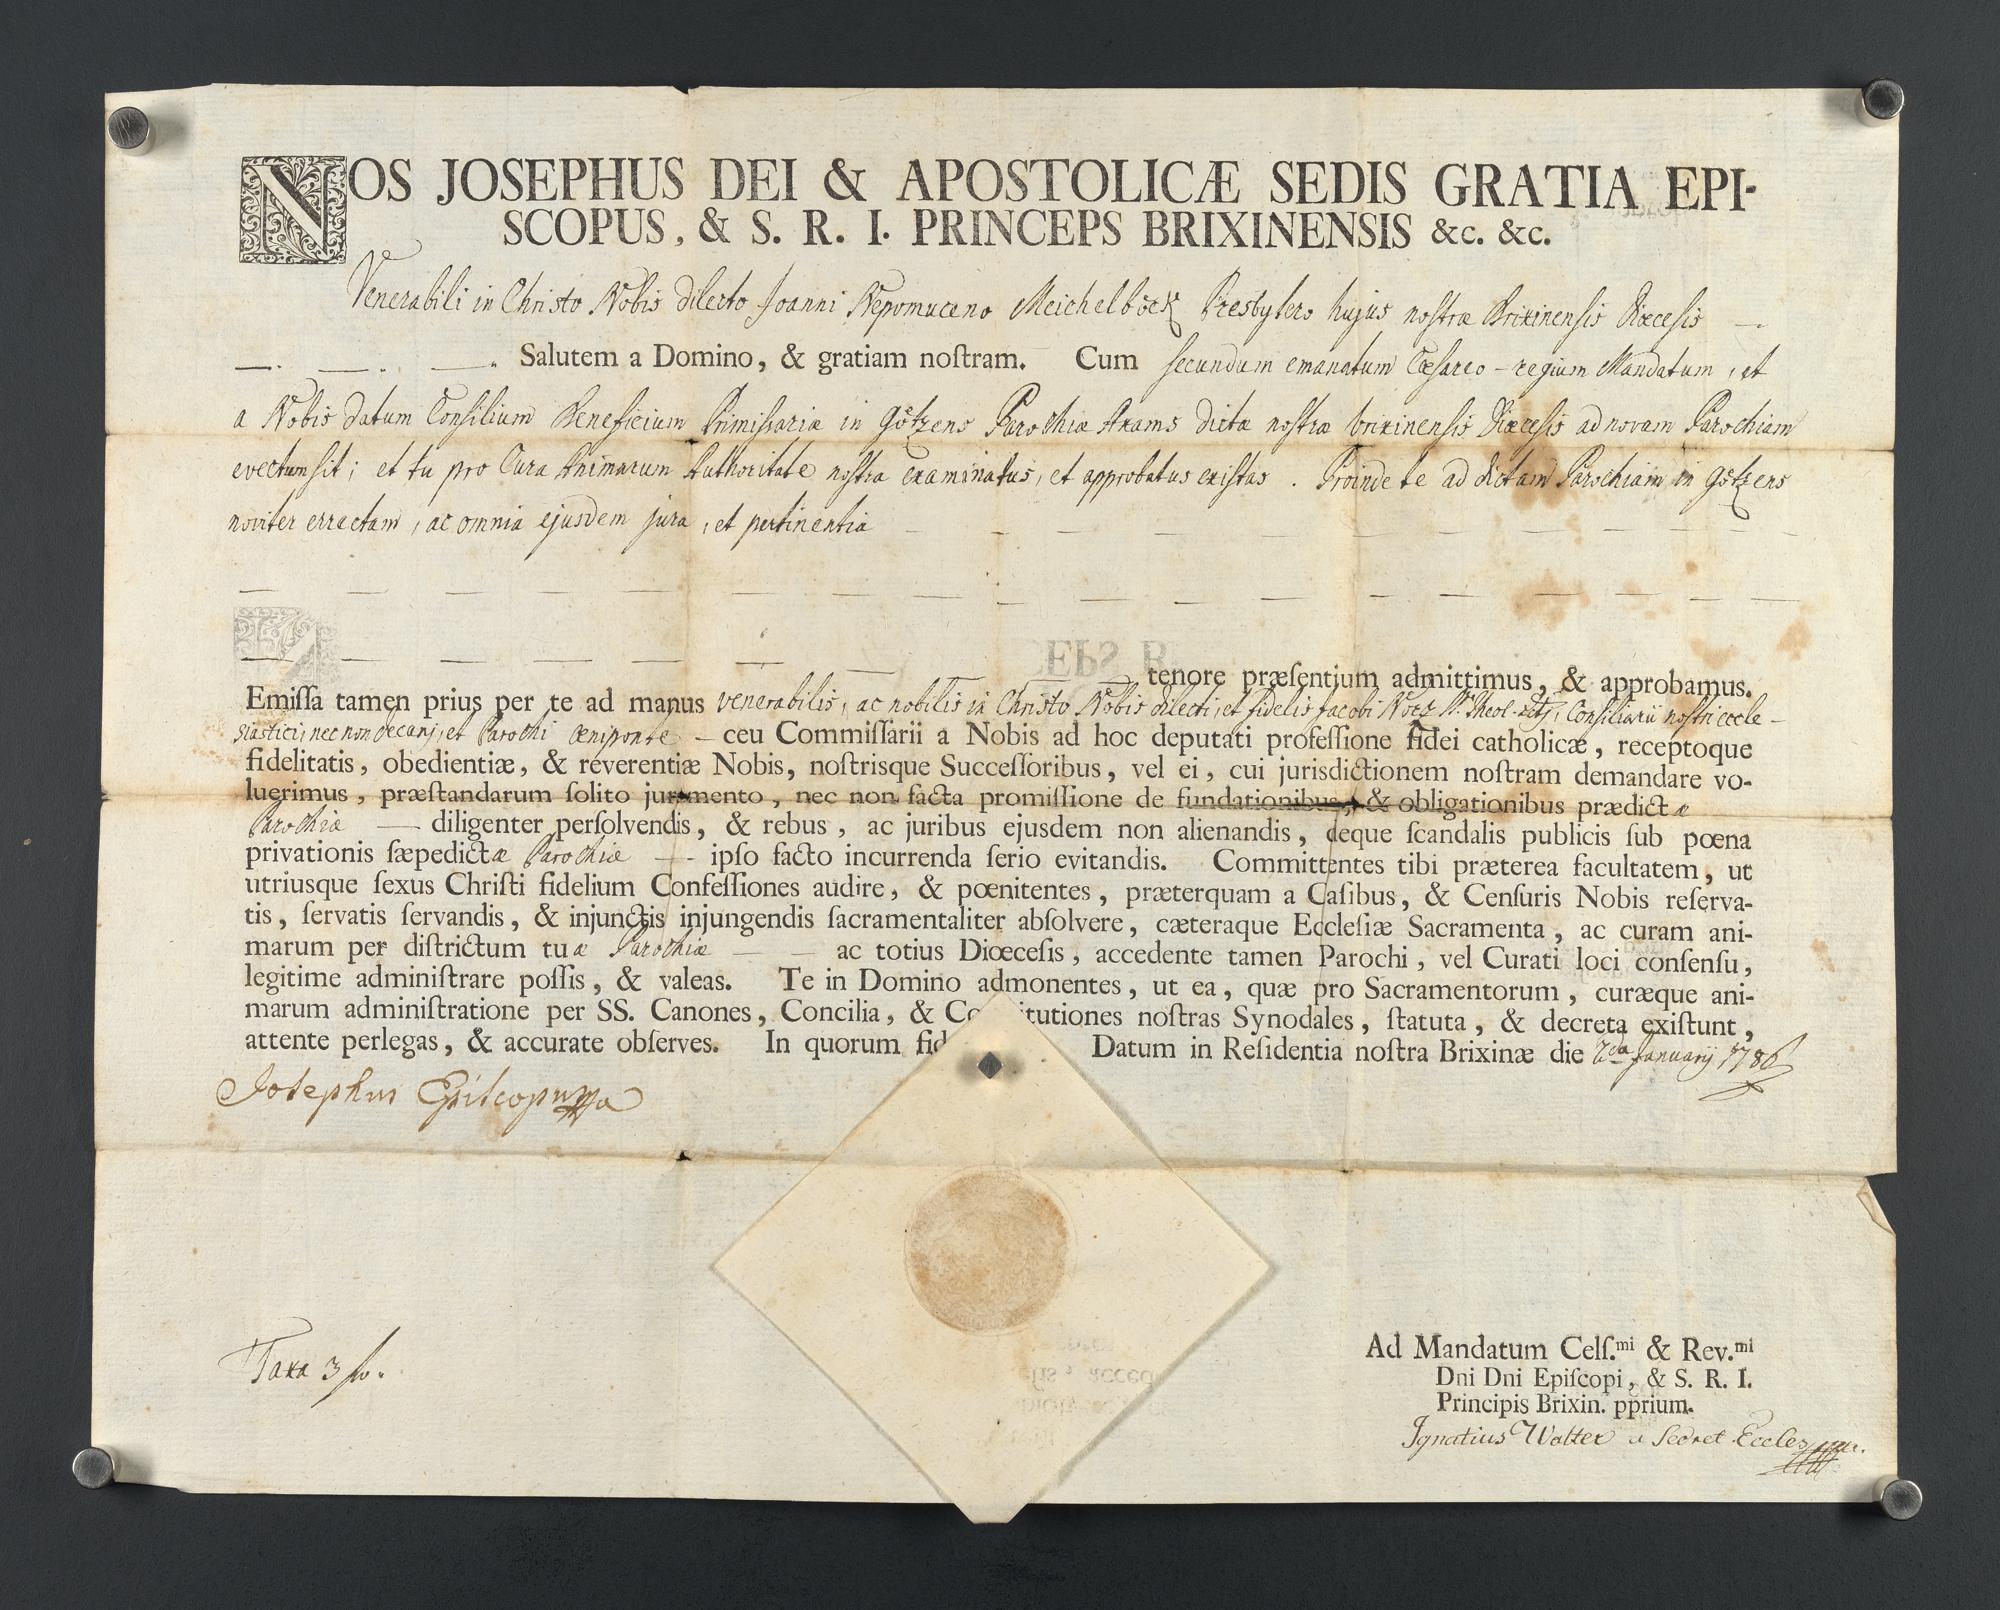 NOS JOSEPHUS DEI & APOSTOLICÆ SEDIS GRATIA EPI-
SCOPUS, & S. R. I. PRINCEPS BRIXINENSIS &c. &c.
Venerabili in Christo Nobis dilecto Joanni Nepomuceno Meichelböck Presbytero hujus nostræ Brixinensis Diœcesis —
—. —. —. Salutem a Domino, & gratiam noſtram. Cum secundum emanatum Cæsareo-regium Mandatum, et
a Nobis datum Consilium Beneficium Primissariæ in Götzens Parochiæ Axams dictæ nostræ brixinensis Diœcesis ad novam Parochiam
evectum sit; et tu pro Cura Animarum Authoritate nostra examinatus, et approbatus existas. Proinde te ad dictam Parochiam in Götzens
noviter errectam, ac omnia ejusdem jura, et pertinentia
tenore præſentium admittimus, & approbamus.
Emiſſa tamen prius per te ad manus venerabilis, ac nobilis in Christo Nobis dilecti, et fidelis Jacobi Theol. Consiliarii nostri eccle-
siastici, nec non decanj, et Parochi Œniponte — ceu Commiſſarii a Nobis ad hoc deputati profeſſione fidei catholicæ, receptoque
fidelitatis, obedientiæ, & reverentiæ Nobis, noſtrisque Succeſſoribus, vel ei, cui jurisdictionem noſtram demandare vo-
luerimus, præſtandarum ſolito juramento, nec non facta promiſſione de fundationibus, & obligationibus prædictæ
Parochiæ — diligenter perſolvendis, & rebus, ac juribus ejusdem non alienandis, deque ſcandalis publicis ſub pœna
privationis ſæpedictæ Parochiæ — ipſo facto incurrenda ſerio evitandis. Committentes tibi præterea facultatem, ut
utriusque ſexus Chriſti fidelium Confeſſiones audire, & pœnitentes, præterquam a Caſibus, & Cenſuris Nobis reſerva-
tis, ſervatis ſervandis, & injunctis injungendis ſacramentaliter abſolvere, cæteraque Eccleſiæ Sacramenta, ac curam ani-
marum per diſtrictum tuæ Parochiæ — — ac totius Diœceſis, accedente tamen Parochi, vel Curati loci conſenſu,
legitime adminiſtrare poſſis, & valeas. Te in Domino admonentes, ut ea, quæ pro Sacramentorum, curæque ani-
marum adminiſtratione per SS. Canones, Concilia, & Co itutiones noſtras Synodales, ſtatuta, & decreta exiſtunt,
attente perlegas, & accurate obſerves. In quorum fid Datum in Reſidentia noſtra Brixinæ die 2da January 1786
Josephus Episcopus
Taxa 3 fl.
Ad Mandatum Celſ.mi & Rev.mi
Dni Dni Epiſcopi, & S. R. I.
Principis Brixin. pprium.
Ignatius Walter a Secret. Eccles